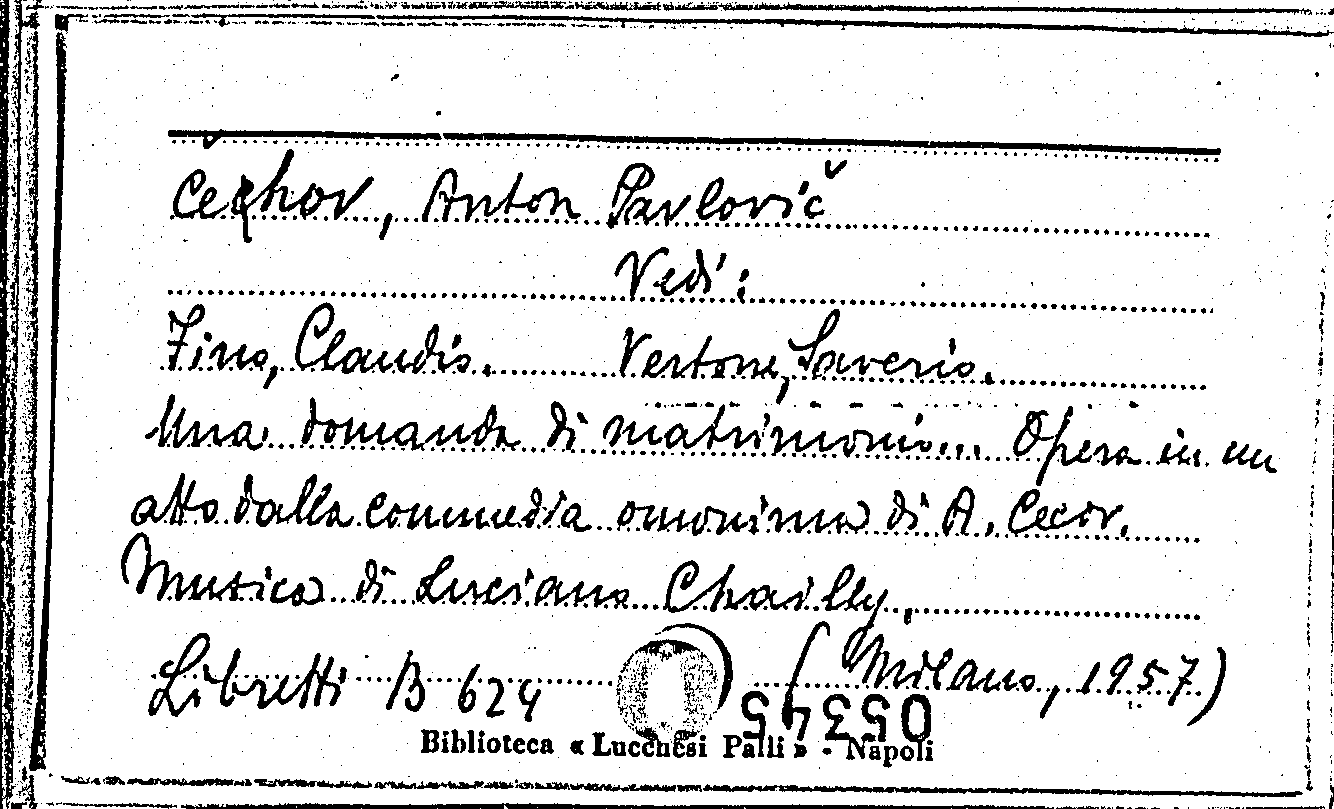 Čechov, Anton Pavlovič
Vedi:
Fino, Claudio. Vertone, Saverio.
Una domanda di matrimonio... Opera in un
atto dalla commedia omonima di A. Cecov.
Musica di Luciano Chailly.
Libretti B 624 (Milano, 1957)
05345
Biblioteca « Lucchesi Palli » - Napoli